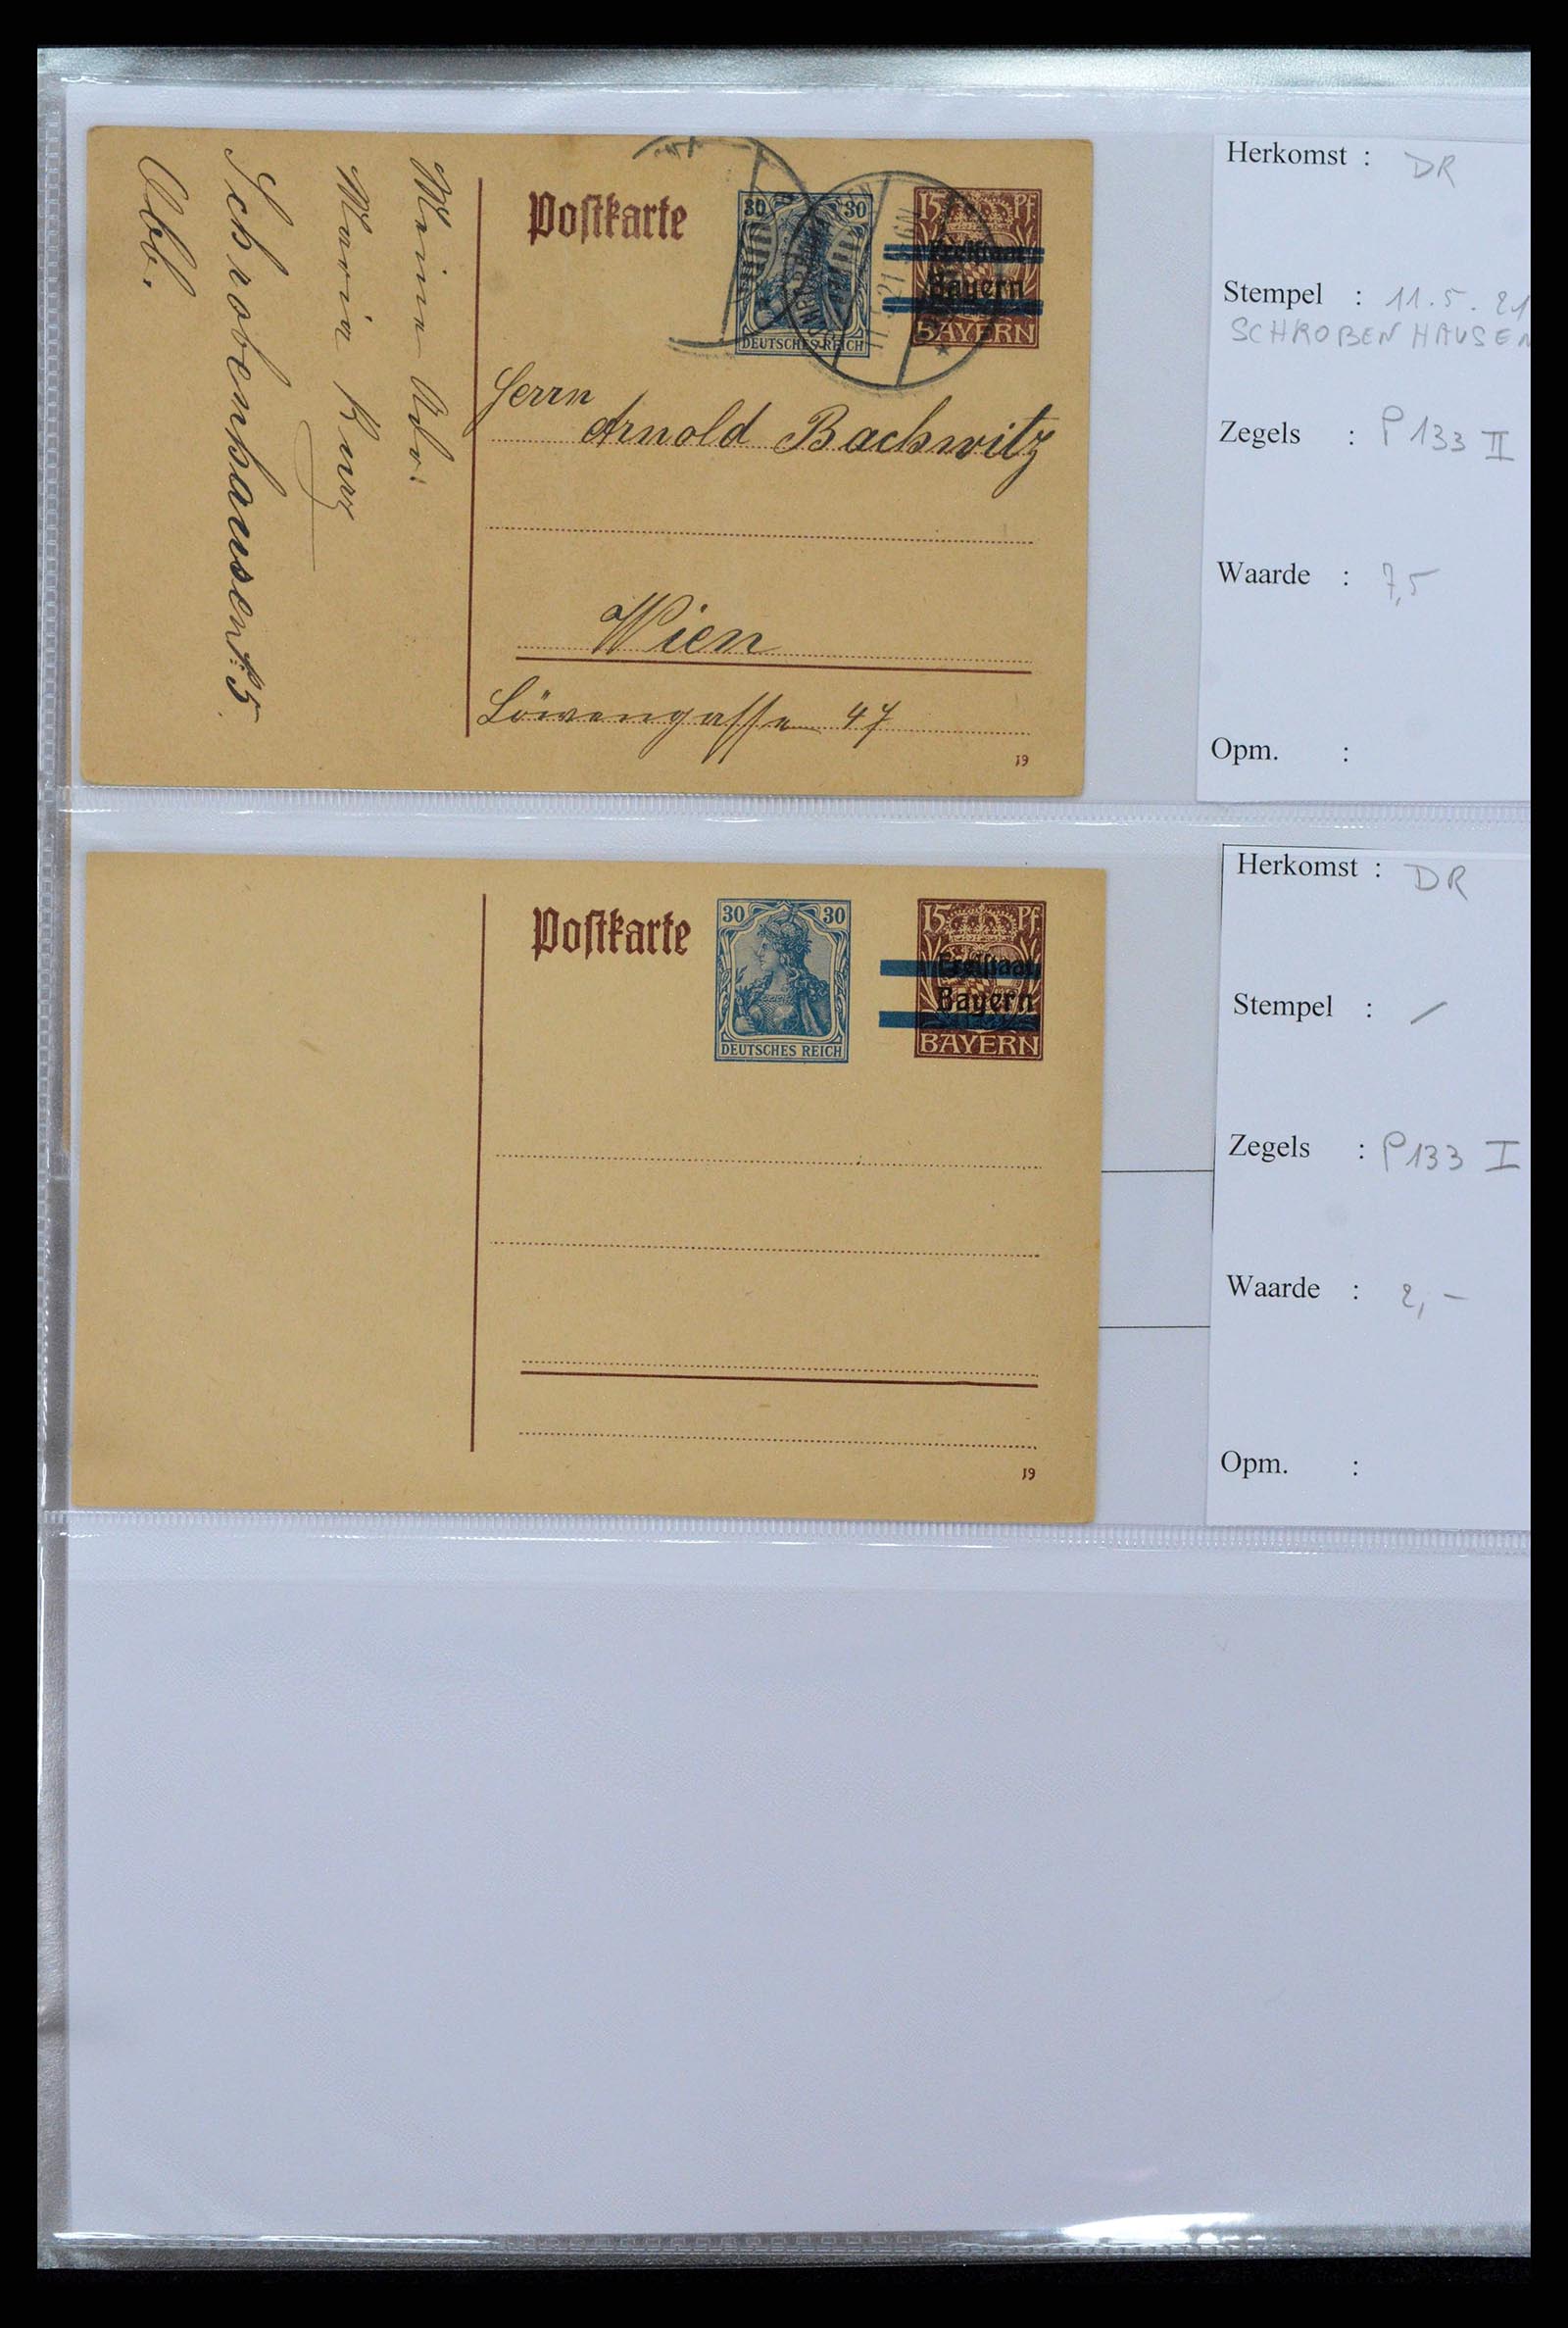 Postkarte
30 30
DEUTSCHES REICH
15 Pf.
Freistaat
Bayern
BAYERN
Herrn
Arnold Bachwitz
Wien
Löwengasse 47
19
Meine Adr:
Maria Kurz
Schrobenhausen
Obb.
Herkomst : DR
Stempel : 11.5.21
SCHROBENHAUSEN
Zegels : P 133 II
Waarde : 7,5
Opm. :
Postkarte
30 30
DEUTSCHES REICH
15 Pf.
Freistaat
Bayern
BAYERN
19
Herkomst : DR
Stempel : /
Zegels : P 133 I
Waarde : 2,-
Opm. :